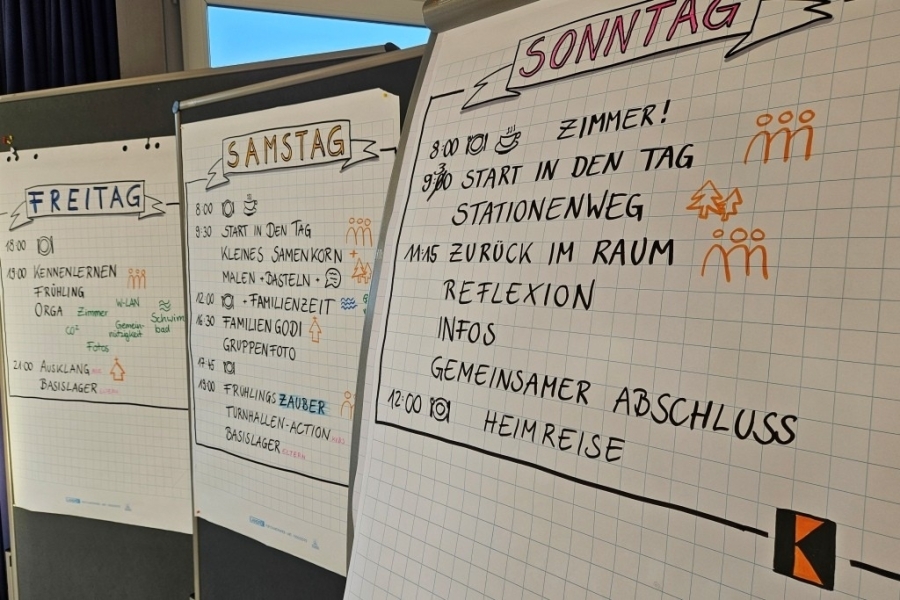 FREITAG
18:00
19:00 KENNENLERNEN
FRÜHLING
ORGA Zimmer W-LAN
CO² Gemein-
nützigkeit
Schwimm
bad
Fotos
21:00 AUSKLANG
BASISLAGER ELTERN
SAMSTAG
8:00
9:30 START IN DEN TAG
KLEINES SAMENKORN +
MALEN + BASTELN +
12:00 + FAMILIENZEIT
16:30 FAMILIENGODI
GRUPPENFOTO
17:45
19:00 FRÜHLINGSZAUBER
TURNHALLEN-ACTION
BASISLAGER ELTERN
SONNTAG
8:00 ZIMMER!
9:30 START IN DEN TAG
STATIONENWEG
11:15 ZURÜCK IM RAUM
REFLEXION
INFOS
GEMEINSAMER ABSCHLUSS
12:00 HEIMREISE
K